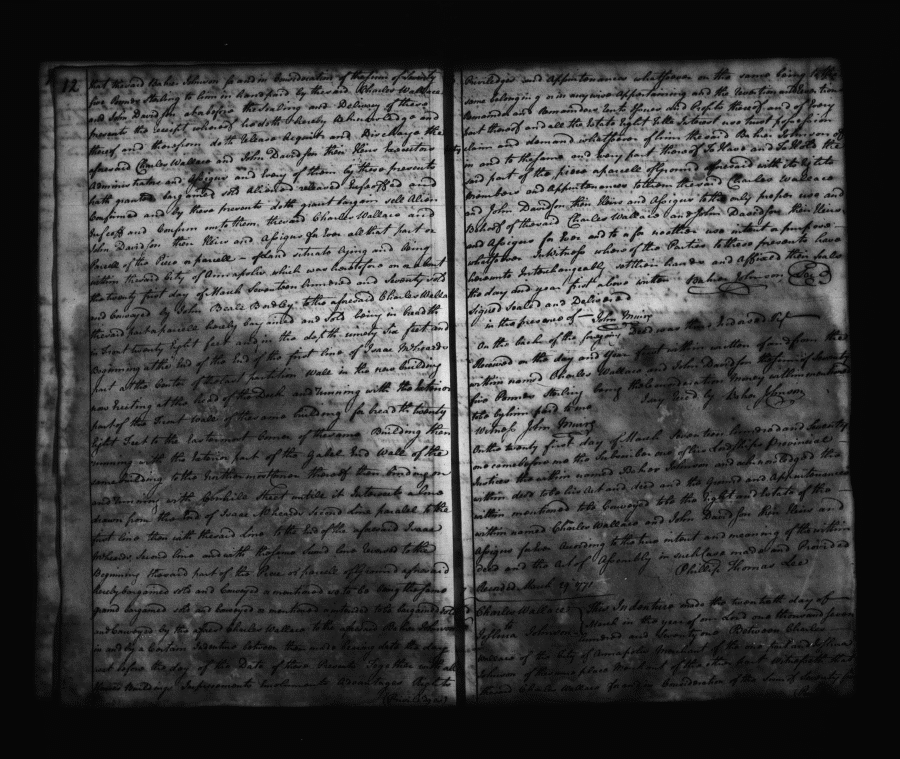 12
that the said Baker Johnson for and in Consideration of the sum of Seventy
five Pounds Sterling to him in hand paid by the said Charles Wallace
and John Davidson at or before the Sealing and Delivery of these
presents the receipt whereof he doth hereby Acknowledge and
thereof and therefrom doth release Acquit and Discharge the
aforesaid Charles Wallace and John Davidson their Heirs Executors
Administrators and Assigns and every of them by these presents
hath granted bargained sold Aliened released Enfeoffed and
Confirmed and by these presents doth grant bargain sell Alien
Enfeoff and Confirm unto them the said Charles Wallace and
John Davidson their Heirs and Assigns for Ever all that part or
Parcell of the Piece or parcell of land situate lying and being
within the said City of Annapolis which was heretofore on
the twenty first day of March Seventeen hundred and Seventy sold
and conveyed by John Beale Bordley to the aforesaid Charles Wallace
the said part or parcell hereby bargained and sold being in breadth
in front twenty Eight feet and in the depth ninety Six feet and
Beginning at the End of the first line of Isaac McHeards
part at the Center of the partition Wall in the new building
now Erecting at the head of the Dock and running with the Exterior
part of the Front Wall of the same building for breadth twenty
Eight Feet to the Easternmost Corner of the same Building then
running with the Exterior part of the Gabel End Wall of the
same building to the Northernmost thereof then bending on
and running with Cornhill Street untill it Intersects a line
drawn from the End of Isaac McHeards Second Line parallel to the
first line then with the said Line to the End of the aforesaid Isaac
McHeards Second line and with the same Second line reversed to the
Beginning the said part of the Piece or parcell of Ground aforesaid
hereby bargained sold and Conveyed or mentioned so to be being the same
and Conveyed by the aforesaid Charles Wallace to the aforesaid Baker Johnson
in and by a Certain Indenture between them made bearing date the day
next before the day of the Date of these Presents Together with all
Houses Buildings Improvements Emoluments Advantages Rights
Priviledges and Appurtenances whatsoever on the same being to the
same belonging or in anywise Appertaining and the Reversion and Reversions
Remainder and Remainders Rents Issues and Profits thereof and of Every
part thereof and all the Estate right title Interest use trust possession
claim and demand whatsoever of him the said Baker Johnson of
in and to the same and every part thereof To Have and To Hold the
said part of the piece or parcell of Ground aforesaid with its Estate
Members and Appurtenances to them the said Charles Wallace
and John Davidson their Heirs and Assigns to the only proper use and
Behoof of the said Charles Wallace and John Davidson their Heirs
and Assigns for Ever and to or for no other use intent or purpose
whatsoever In Witness whereof the Parties to these presents have
hereunto Interchangeably set their hands and affixed their Seals
the day and year first above written Baker Johnson Seal
Signed Sealed and Delivered
in the presence of John Muir
On the back of the foregoing Deed was thus Indorsed
Received on the day and year first within written of and from the
within named Charles Wallace and John Davidson the sum of Seventy
five Pounds Sterling being the Consideration Money within mentioned
to be by him paid to me Baker Johnson
Witness John Muir
On the twenty first day of March Seventeen hundred and Seventy
one came before me the Subscriber one of his Lordships Provincial
Justices the within named Baker Johnson and acknowledged the
within deed to be his Act and deed and the Ground and Appurtenances
within mentioned to be Conveyed to be the right and Estate of the
within named Charles Wallace and John Davidson their Heirs and
Assigns for Ever According to the true intent and meaning of the within
deed and the Act of Assembly in such Case made and Provided
Phill. Thomas Lee
Recorded March 29. 1771
Charles Wallace This Indenture made the twentieth day of
to March in the year of our Lord one thousand seven
Joshua Johnson hundred and Seventy one Between Charles
Wallace of the City of Annapolis Merchant of the one part and Joshua
Johnson of the same place Merchant of the other part Witnesseth that
the said Charles Wallace for and in Consideration of the Sum of Seventy five